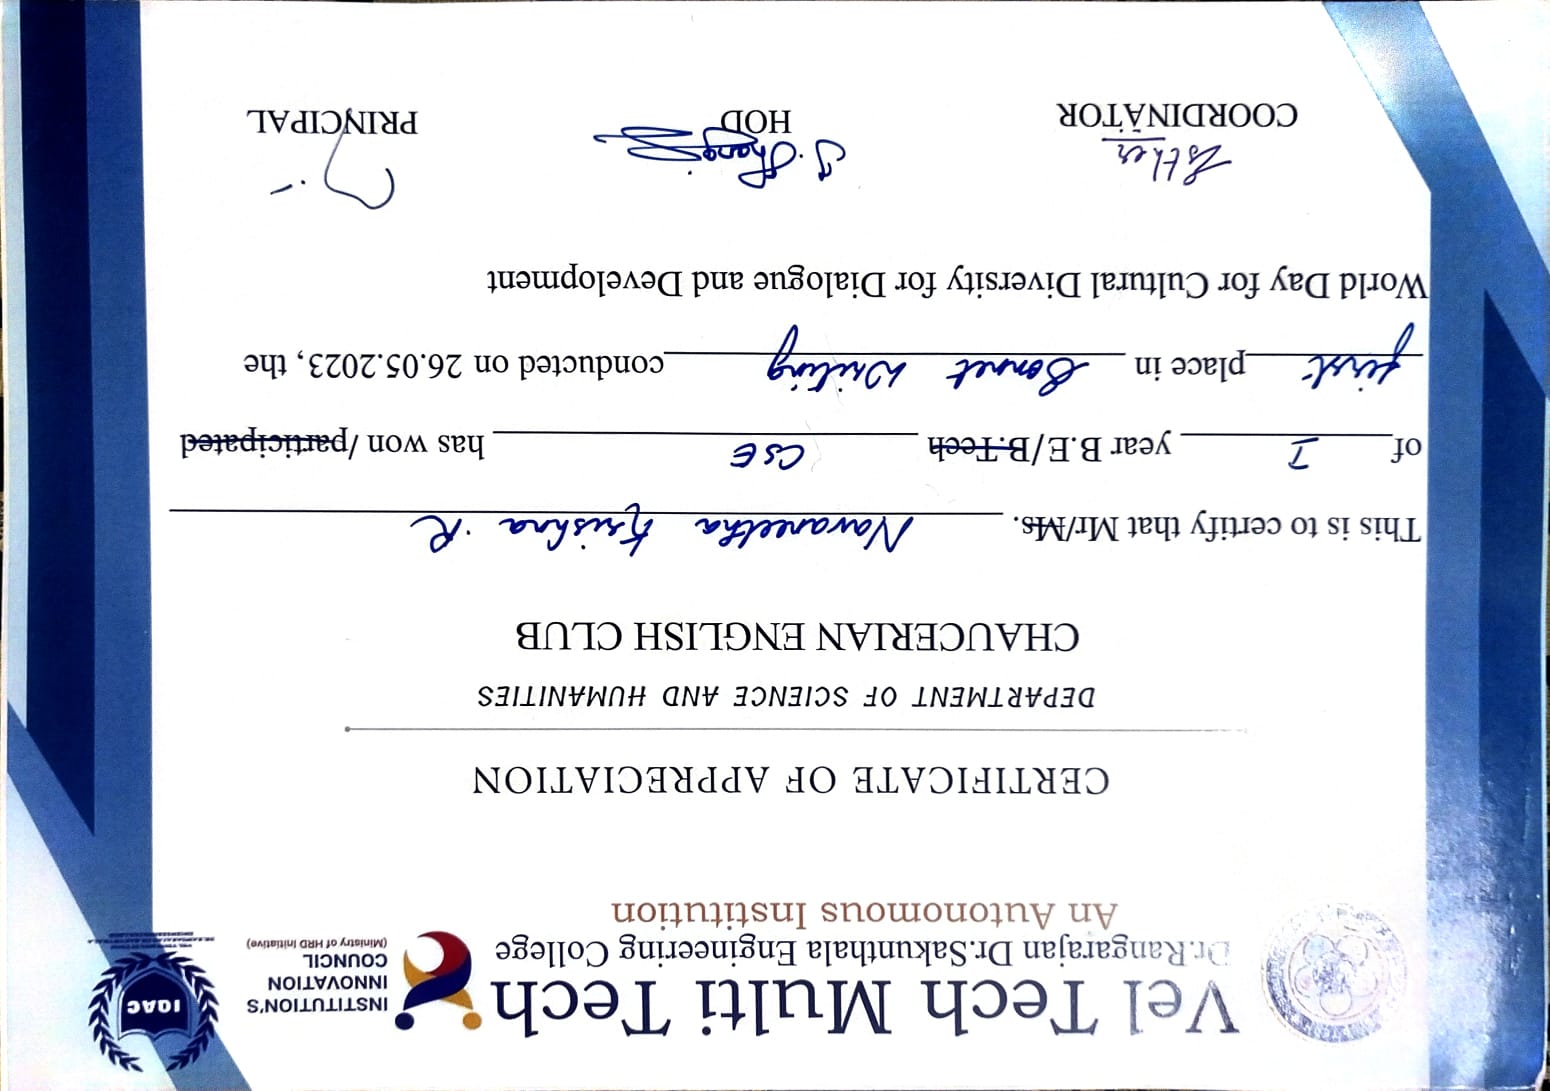 Vel Tech Multi Tech
Dr.Rangarajan Dr.Sakunthala Engineering College
An Autonomous Institution
INSTITUTION'S
INNOVATION
COUNCIL
(Ministry of HRD Initiative)
IQAC
CERTIFICATE OF APPRECIATION
DEPARTMENT OF SCIENCE AND HUMANITIES
CHAUCERIAN ENGLISH CLUB
This is to certify that Mr/Ms. Navaneetha Krishna .R
of I year B.E/B.Tech CSE has won /participated
first place in Sonnet Writing conducted on 26.05.2023, the
World Day for Cultural Diversity for Dialogue and Development
Esther
COORDINATOR
HOD
PRINCIPAL